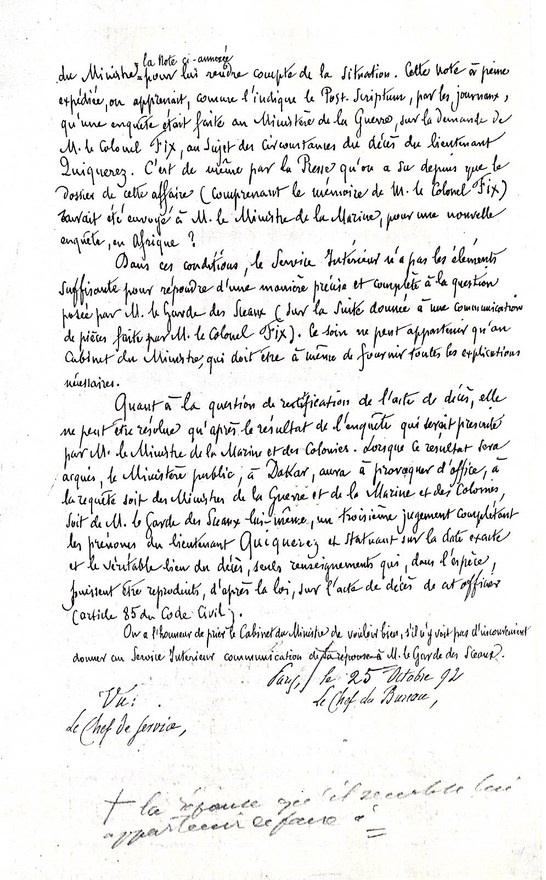 la Note ci-annexée
du Ministre pour lui rendre compte de la situation. Cette note à peine
expédiée, on apprenait, comme l'indique le Post. Scriptum, par les journaux,
qu'une enquête était faite au Ministère de la Guerre, sur la demande de
M. le Colonel Fix, au sujet des circonstances du décès du lieutenant
Quiquerez. C'est de même par la Presse qu'on a su depuis que le
dossier de cette affaire (comprenant le mémoire de M. le Colonel Fix)
aurait été envoyé à M. le Ministre de la Marine, pour une nouvelle
enquête, en Afrique ?
Dans ces conditions, le Service Intérieur n'a pas les éléments
suffisants pour répondre d'une manière précise et complète à la question
posée par M. le Garde des Sceaux (sur la suite donnée à une communication
de pièces faite par M. le Colonel Fix). Ce soin ne peut appartenir qu'au
Cabinet du Ministre, qui doit être à même de fournir toutes les explications
nécessaires.
Quant à la question de rectification de l'acte de décès, elle
ne peut être résolue qu'après le résultat de l'enquête qui serait prescrite
par M. le Ministre de la Marine et des Colonies. Lorsque ce résultat sera
acquis, le Ministère public, à Dakar, aura à provoquer d'office, à
la requête soit des Ministres de la Guerre et de la Marine et des Colonies,
soit de M. le Garde des Sceaux lui-même, un troisième jugement complétant
les prénoms du lieutenant Quiquerez et statuant sur la date exacte
et le véritable lieu du décès, seuls renseignements qui, dans l'espèce,
puissent être reproduits, d'après la loi, sur l'acte de décès de cet officier
(article 85 du Code Civil).
On a l'honneur de prier le Cabinet du Ministre de vouloir bien, s'il n'y voit pas d'inconvénient
donner au Service Intérieur communication de sa réponse à M. le Garde des Sceaux.
Paris, le 25 Octobre 92
Vu : Le Chef du Bureau,
Le Chef de Service,
+ la réponse qu'il semble lui
appartenir de faire